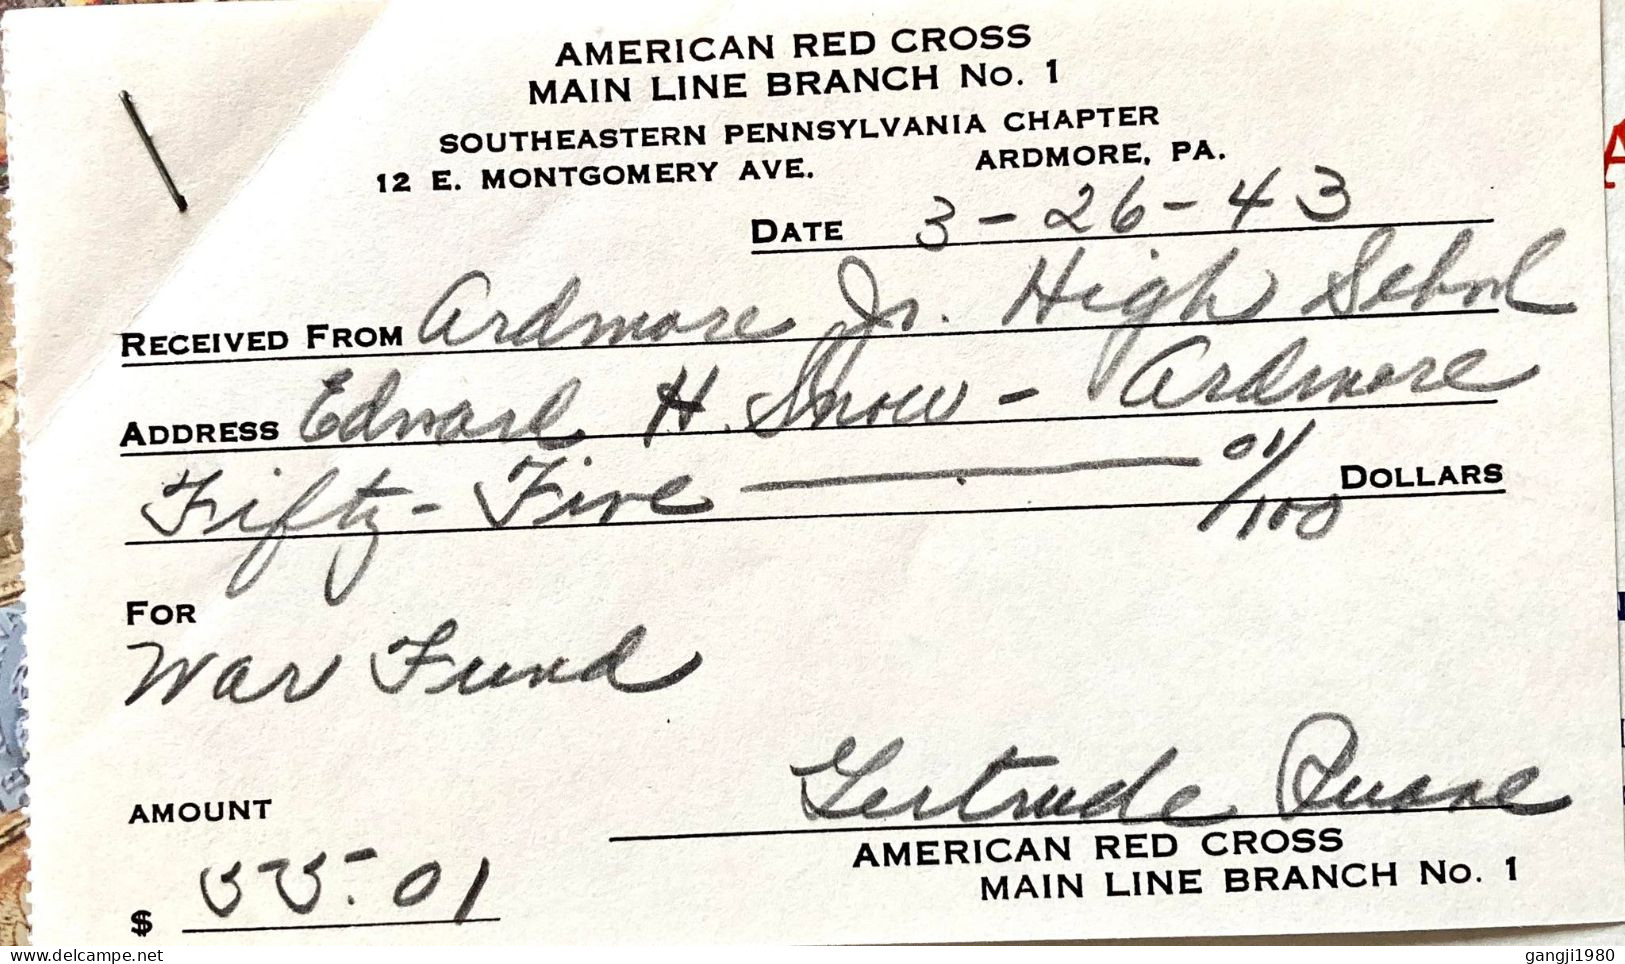 AMERICAN RED CROSS
MAIN LINE BRANCH No. 1
SOUTHEASTERN PENNSYLVANIA CHAPTER
12 E. MONTGOMERY AVE. ARDMORE, PA.
DATE 3-26-43
RECEIVED FROM Ardmore Jr. High School
ADDRESS Edward H. Snow - Ardmore
Fifty-Five 01/100 DOLLARS
FOR
War Fund
Gertrude Quane
AMOUNT
AMERICAN RED CROSS
MAIN LINE BRANCH No. 1
$ 55.01
www.delcampe.net
gangji1980